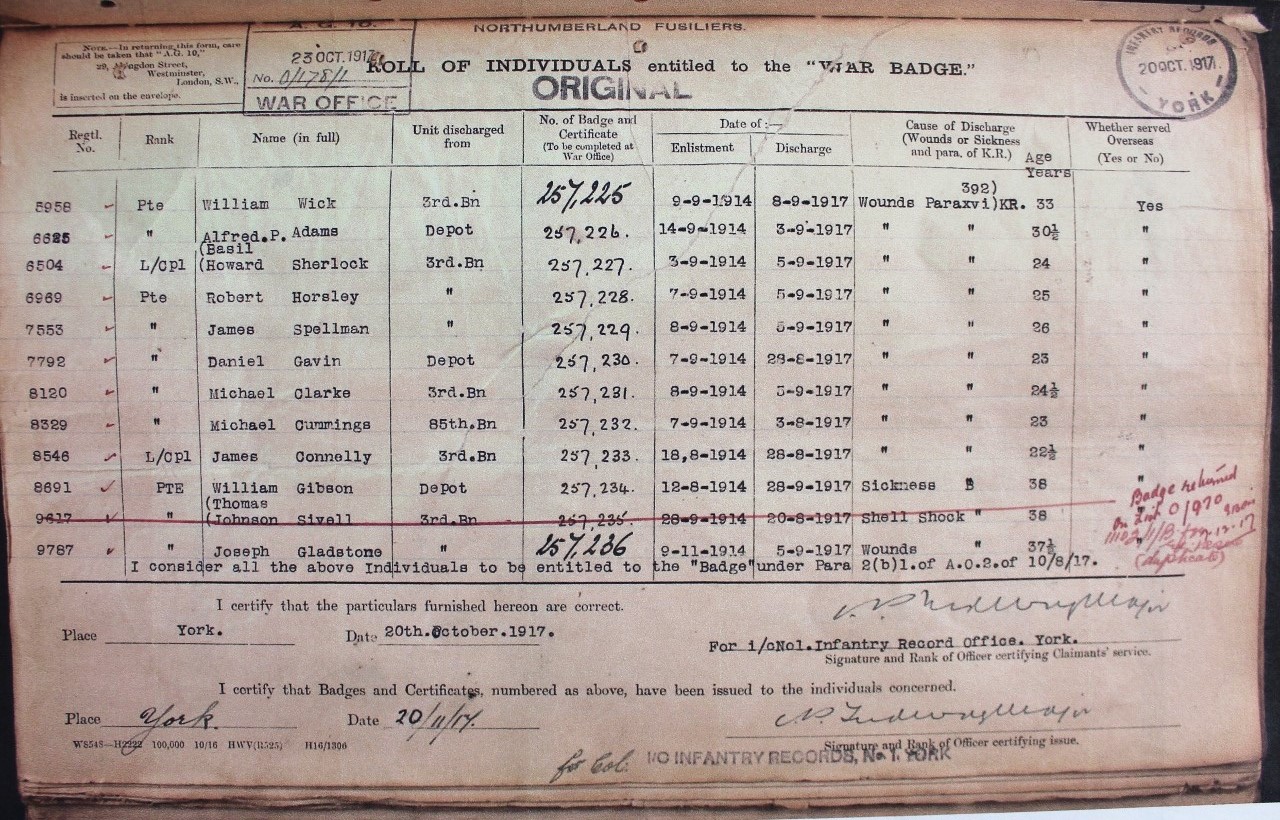 A.G. 10.
NORTHUMBERLAND FUSILIERS.
NOTE.—In returning this form, care
should be taken that "A.G. 10,"
29, Abingdon Street,
Westminster,
London, S.W.,
is inserted on the envelope.
23 OCT. 1917
No. 0/178/1
WAR OFFICE
ROLL OF INDIVIDUALS entitled to the "WAR BADGE."
ORIGINAL
INFANTRY RECORDS
20 OCT. 1917
YORK
Regtl. No. Rank Name (in full) Unit discharged from No. of Badge and Certificate (To be completed at War Office) Date of :— Enlistment Discharge Cause of Discharge (Wounds or Sickness and para. of K.R.) Age Years Whether served Overseas (Yes or No)
392)
5958 Pte William Wick 3rd.Bn 257,225 9-9-1914 8-9-1917 Wounds Paraxvi)KR. 33 Yes
6625 " Alfred.P. Adams Depot 257,226. 14-9-1914 3-9-1917 " " 30½ "
(Basil
6504 L/Cpl (Howard Sherlock 3rd.Bn 257,227. 3-9-1914 5-9-1917 " " 24 "
6969 Pte Robert Horsley " 257,228. 7-9-1914 5-9-1917 " " 25 "
7553 " James Spellman " 257,229. 8-9-1914 5-9-1917 " " 26 "
7792 " Daniel Gavin Depot 257,230. 7-9-1914 28-8-1917 " " 23 "
8120 " Michael Clarke 3rd.Bn 257,231. 8-9-1914 5-9-1917 " " 24½ "
8329 " Michael Cummings 85th.Bn 257,232. 7-9-1914 3-8-1917 " " 23 "
8546 L/Cpl James Connelly 3rd.Bn 257,233. 18,8-1914 28-8-1917 " " 22½ "
8691 PTE William Gibson Depot 257,234. 12-8-1914 28-9-1917 Sickness " 38 "
(Thomas
9617 " (Johnson Sivell 3rd.Bn 257,235. 28-9-1914 20-8-1917 Shell Shock " 38 "
9787 " Joseph Gladstone " 257,236 9-11-1914 5-9-1917 Wounds " 37½
Badge returned
0/970
(duplicate)
I consider all the above Individuals to be entitled to the "Badge"under Para 2(b)1.of A.O.2.of 10/8/17.
I certify that the particulars furnished hereon are correct.
Place York. Date 20th.October.1917.
Major
For i/cNo1.Infantry Record Office. York.
Signature and Rank of Officer certifying Claimants' service.
I certify that Badges and Certificates, numbered as above, have been issued to the individuals concerned.
Place York. Date 20/11/17.
Major
Signature and Rank of Officer certifying issue.
W8548—H2222 100,000 10/16 HWV(R525) H16/1306
for Col. I/C INFANTRY RECORDS, No. 1. YORK